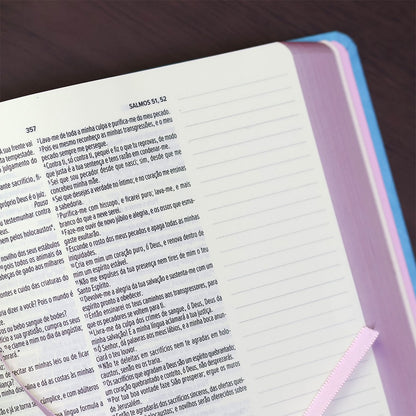 357
SALMOS 51, 52
sua frente vai
tempestade.
julgamento do
sacrifício, fi-
Deus é o
testemunhar contra
pelos holocaustos
novilho dos seus estábulos
pois todos os animais da
cabeças de gado aos milhares
e cuido das criaturas do
dizer a você? Pois o mundo é
ou bebo sangue de bodes?
a sua gratidão, cumpra os seus
e clame a mim no dia da angústia;
de recitar as minhas leis ou de ficar
e dá as costas às minhas
cúmplice, e com adúlteros
língua formula
2 Lava-me de toda a minha culpa e purifica-me do meu pecado.
3 Pois eu mesmo reconheço as minhas transgressões, e o meu
pecado sempre me persegue.
4 Contra ti, só contra ti, pequei e fiz o que tu reprovas, de modo
que justa é a tua sentença e tens razão em condenar-me.
5 Sei que sou pecador desde que nasci; sim, desde que me
concebeu minha mãe.
6 Sei que desejas a verdade no íntimo; e no coração me ensinas
a sabedoria.
7 Purifica-me com hissopo, e ficarei puro; lava-me, e mais
branco do que a neve serei.
8 Faze-me ouvir de novo júbilo e alegria, e os ossos que esma-
gaste exultarão.
9 Esconde o rosto dos meus pecados e apaga todas as minhas
iniquidades.
10 Cria em mim um coração puro, ó Deus, e renova dentro de
mim um espírito estável.
11 Não me expulses da tua presença nem tires de mim o teu
Santo Espírito.
12 Devolve-me a alegria da tua salvação e sustenta-me com um
espírito pronto a obedecer.
13 Então ensinarei os teus caminhos aos transgressores, para
que os pecadores se voltem para ti.
14 Livra-me da culpa dos crimes de sangue, ó Deus, Deus da
minha salvação! E a minha língua aclamará à tua justiça.
15 Ó Senhor, dá palavras aos meus lábios, e a minha boca anun-
ciará o teu louvor.
16 Não te deleitas em sacrifícios nem te agradas em holo-
caustos, senão eu os traria.
17 Os sacrifícios que agradam a Deus são um espírito quebrantado;
um coração quebrantado e contrito, ó Deus, não desprezarás.
18 Por tua boa vontade faze Sião prosperar; ergue os muros
de Jerusalém.
19 Então te agradarás dos sacrifícios sinceros, das ofertas quei-
madas e dos holocaustos; e novilhos serão oferecidos sobre